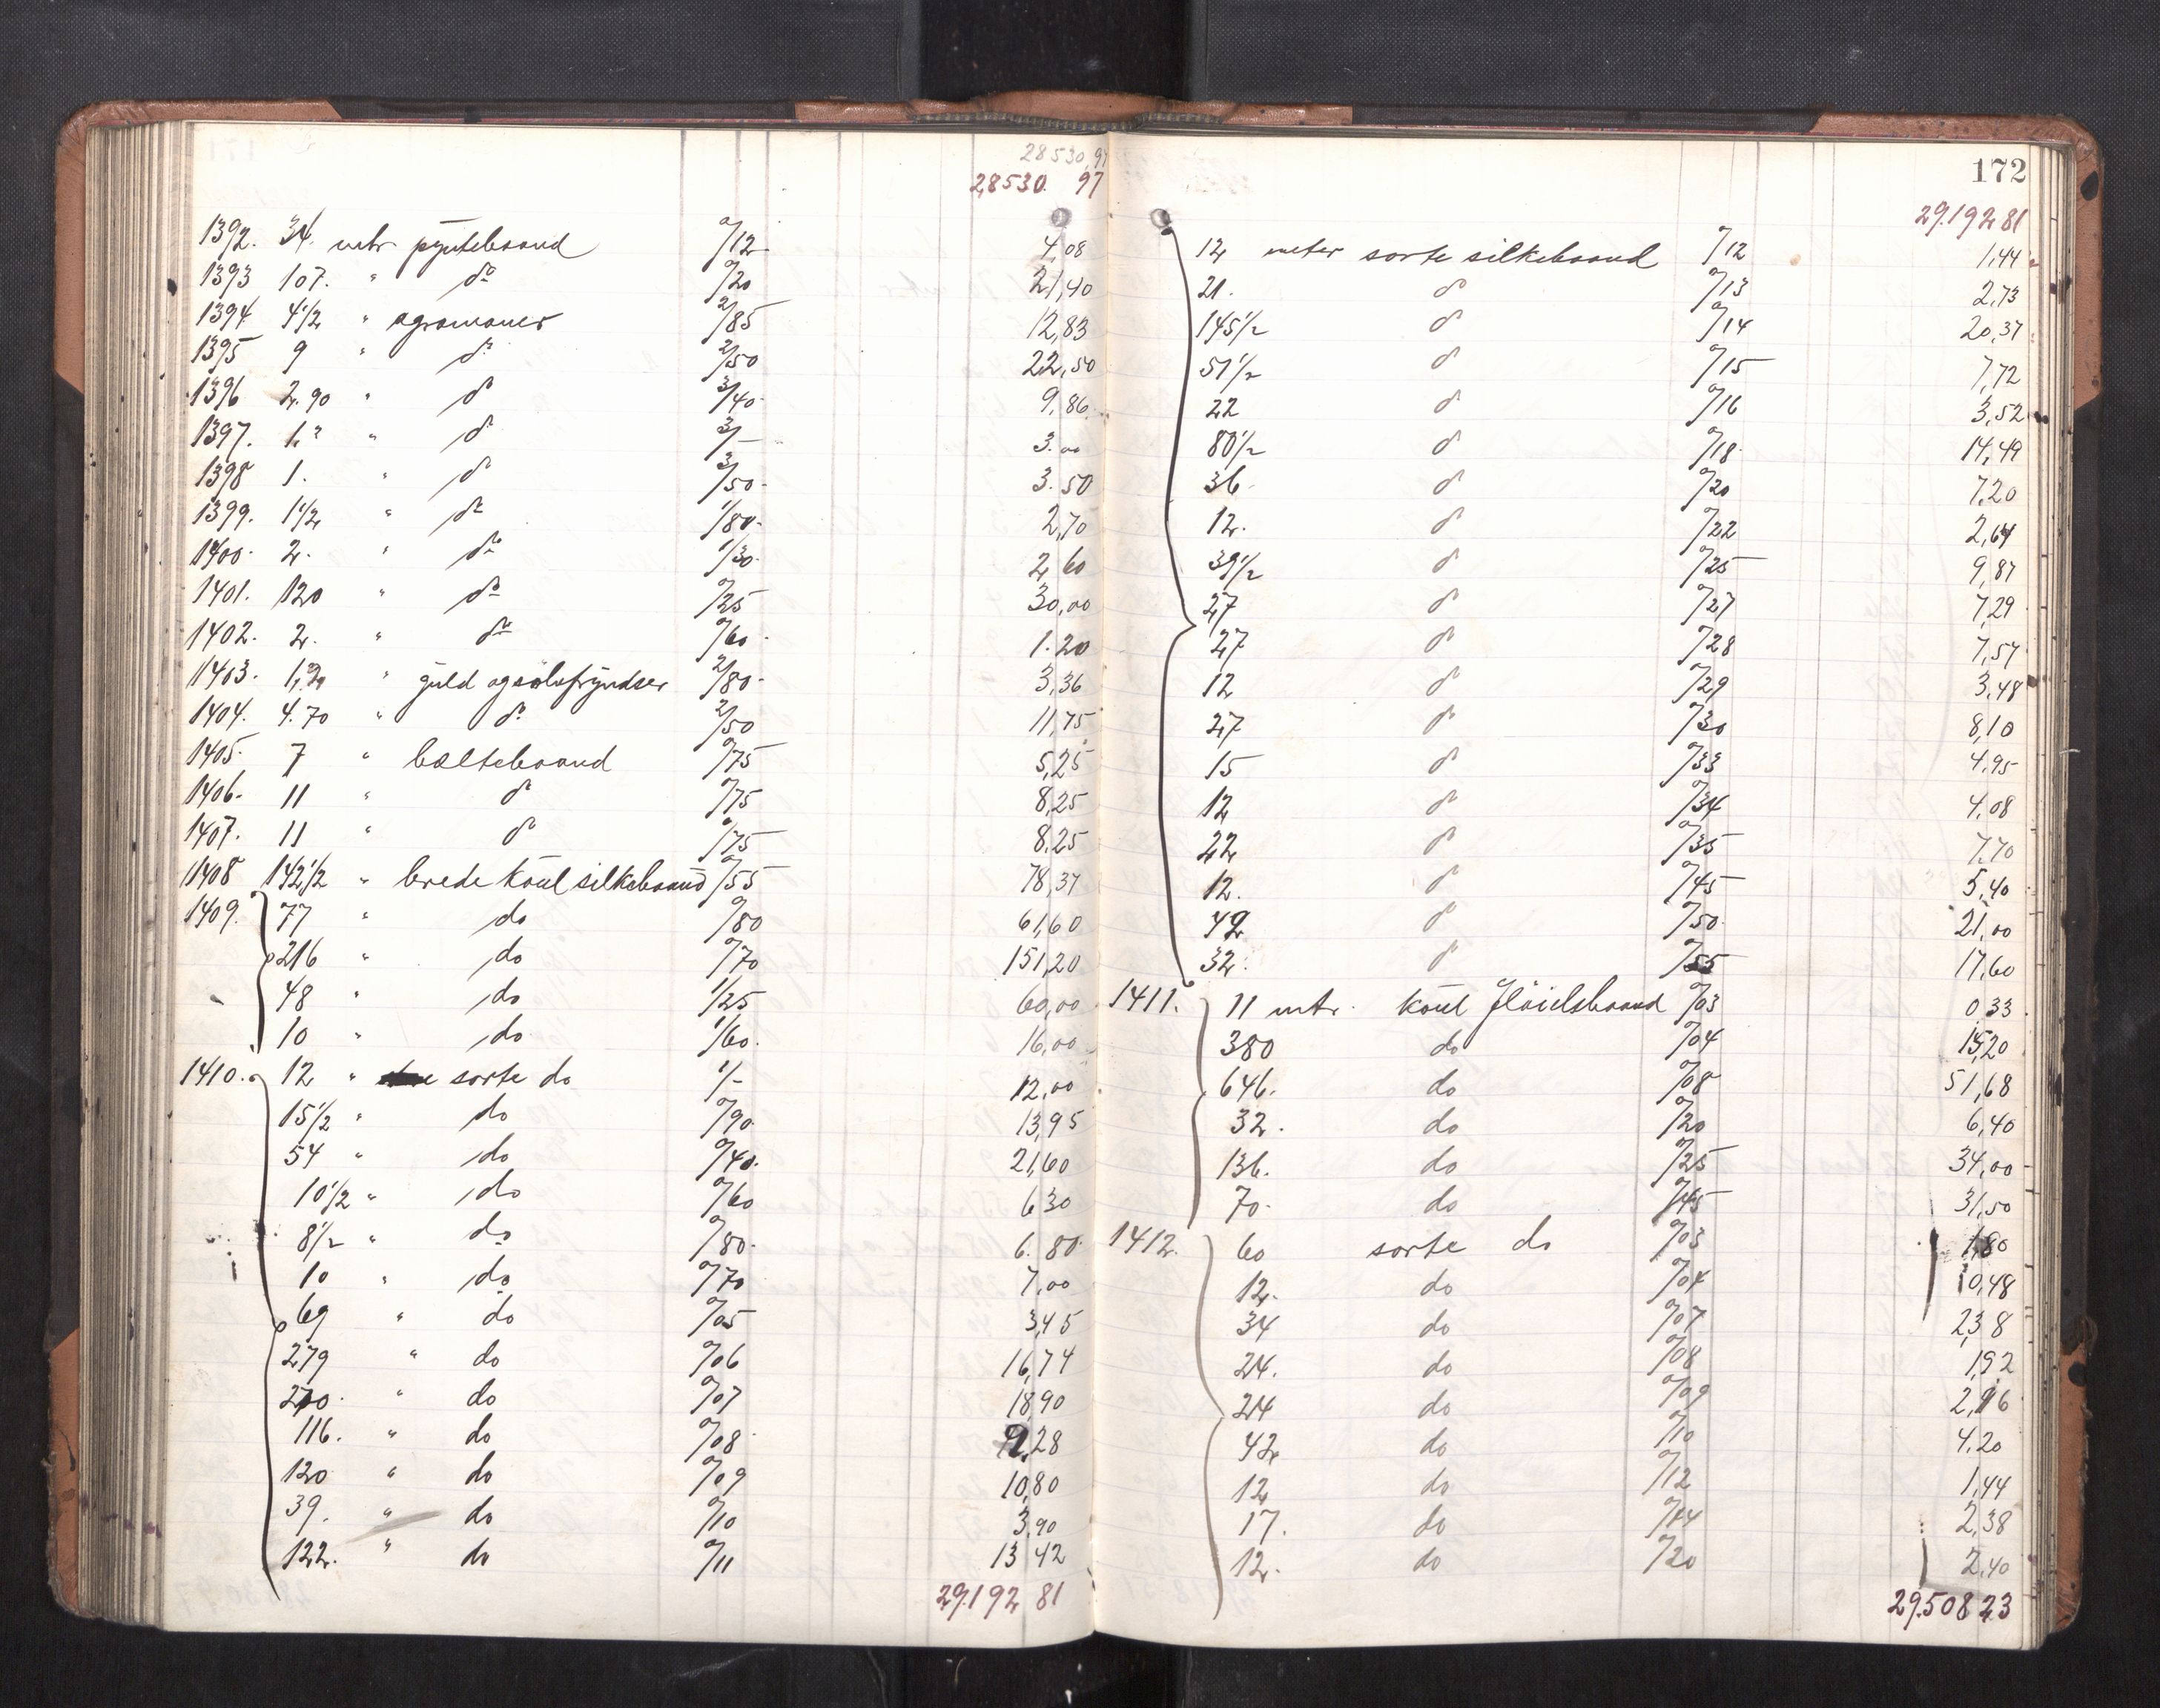 28530,97
28530. 97
1392. 34. mtr pyntebaand 0/12 4,08
1393 107. " do 0/20 21,40
1394 4 1/2 " agramaner 2/85 12,83
1395 9 " do 2/50 22,50
1396 2.90 " do 3/40 9,86
1397. 1. " do 3/- 3.00
1398 1. " do 3/50 3.50
1399. 1 1/2 " do 1/80 2,70
1400. 2. " do 1/30 2,60
1401. 120 " do 0/25 30,00
1402. 2. " do 0/60 1.20
1403. 1,20 " guld og sølvfryndser 2/80 3,36
1404. 4.70 " do 2/50 11,75
1405. 7 " bæltebaand 0/75 5,25
1406. 11 " do 0/75 8,25
1407. 11 " do 0/75 8,25
1408 142 1/2 " brede koul silkebaand 0/55 78,37
1409. 77 " do 0/80 61,60
216 " do 0/70 151,20
48 " do 1/25 60,00
10 " do 1/60 16,00
1410. 12 " sorte do 1/- 12,00
15 1/2 " do 0/90 13,95
54 " do 0/40 21,60
10 1/2 " do 0/60 6 30
8 1/2 " do 0/80 6.80
10 " do 0/70 7,00
69 " do 0/05 3,45
279 " do 0/06 16,74
270 " do 0/07 18,90
116. " do 0/08 9,28
120 " do 0/09 10,80
39. " do 0/10 3,90
122. " do 0/11 13 42
29.192 81
172
29.192 81
12 meter sorte silkebaand 0/12 1,44
21. do 0/13 2,73
145 1/2 do 0/14 20,37
51 1/2 do 0/15 7,72
22 do 0/16 3,52
80 1/2 do 0/18 14,49
36 do 0/20 7,20
12. do 0/22 2,64
39 1/2 do 0/25 9,87
27 do 0/27 7,29
27 do 0/28 7,57
12 do 0/29 3,48
27 do 0/30 8,10
15 do 0/33 4,95
12 do 0/34 4,08
22 do 0/35 7,70
12. do 0/45 5,40
42 do 0/50 21,00
32. do 0/55 17,60
1411. 11 mtr. koul fløielsbaand 0/03 0 33
380 do 0/04 15,20
646. do 0/08 51,68
32. do 0/20 6,40
136. do 0/25 34,00
70. do 0/45 31,50
1412. 60 sorte do 0/03 1,80
12. do 0/04 0,48
34 do 0/07 2,38
24. do 0/08 1,92
24 do 0/09 2,16
42 do 0/10 4,20
12 do 0/12 1,44
17. do 0/14 2,38
12. do 0/20 2,40
29.508 23